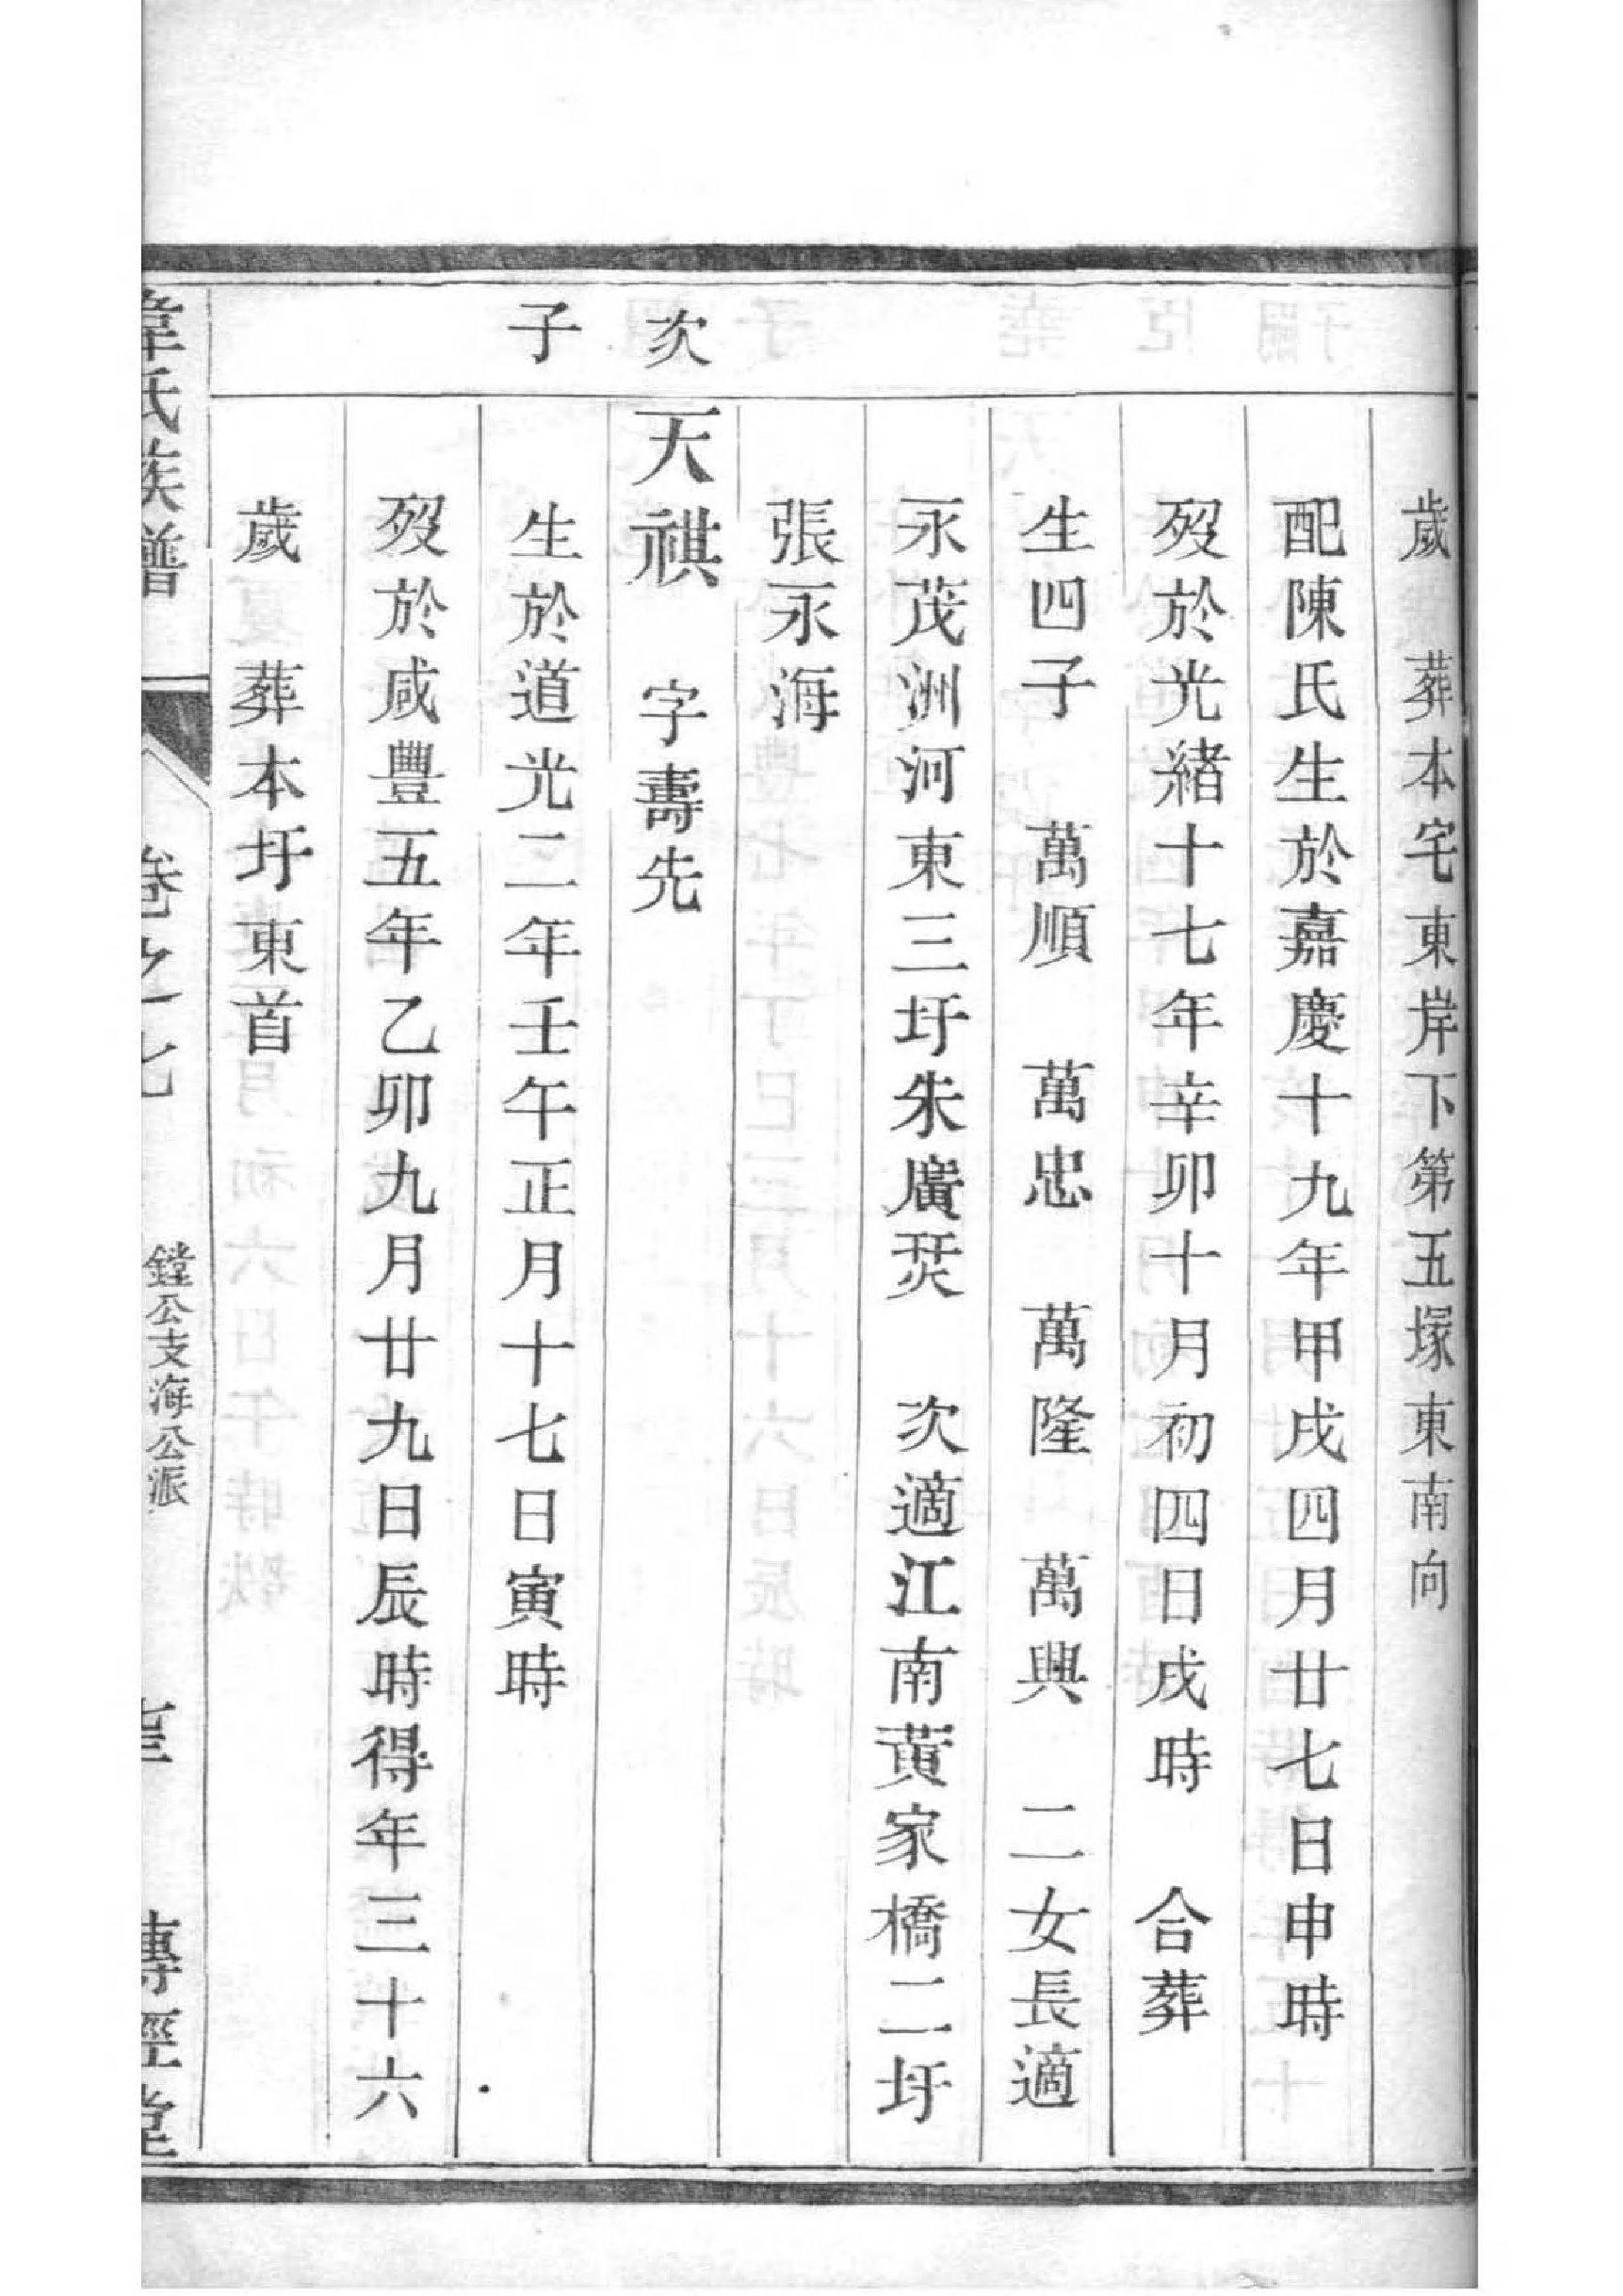 歲　葬本宅東岸下第五塚東南向
配陳氏生於嘉慶十九年甲戌四月廿七日申時
歿於光緒十七年辛卯十月初四日戌時　合葬
生四子　萬順　萬忠　萬隆　萬興　二女長適
永茂洲河東三圩朱廣焚　次適江南黄家橋二圩
張永海
次
天祺　字壽先
子
生於道光二年壬午正月十七日寅時
歿於咸豐五年乙卯九月廿九日辰時得年三十六
歲　葬本圩東首
韋氏族譜　卷之七　鏜公支海公派　傳經堂